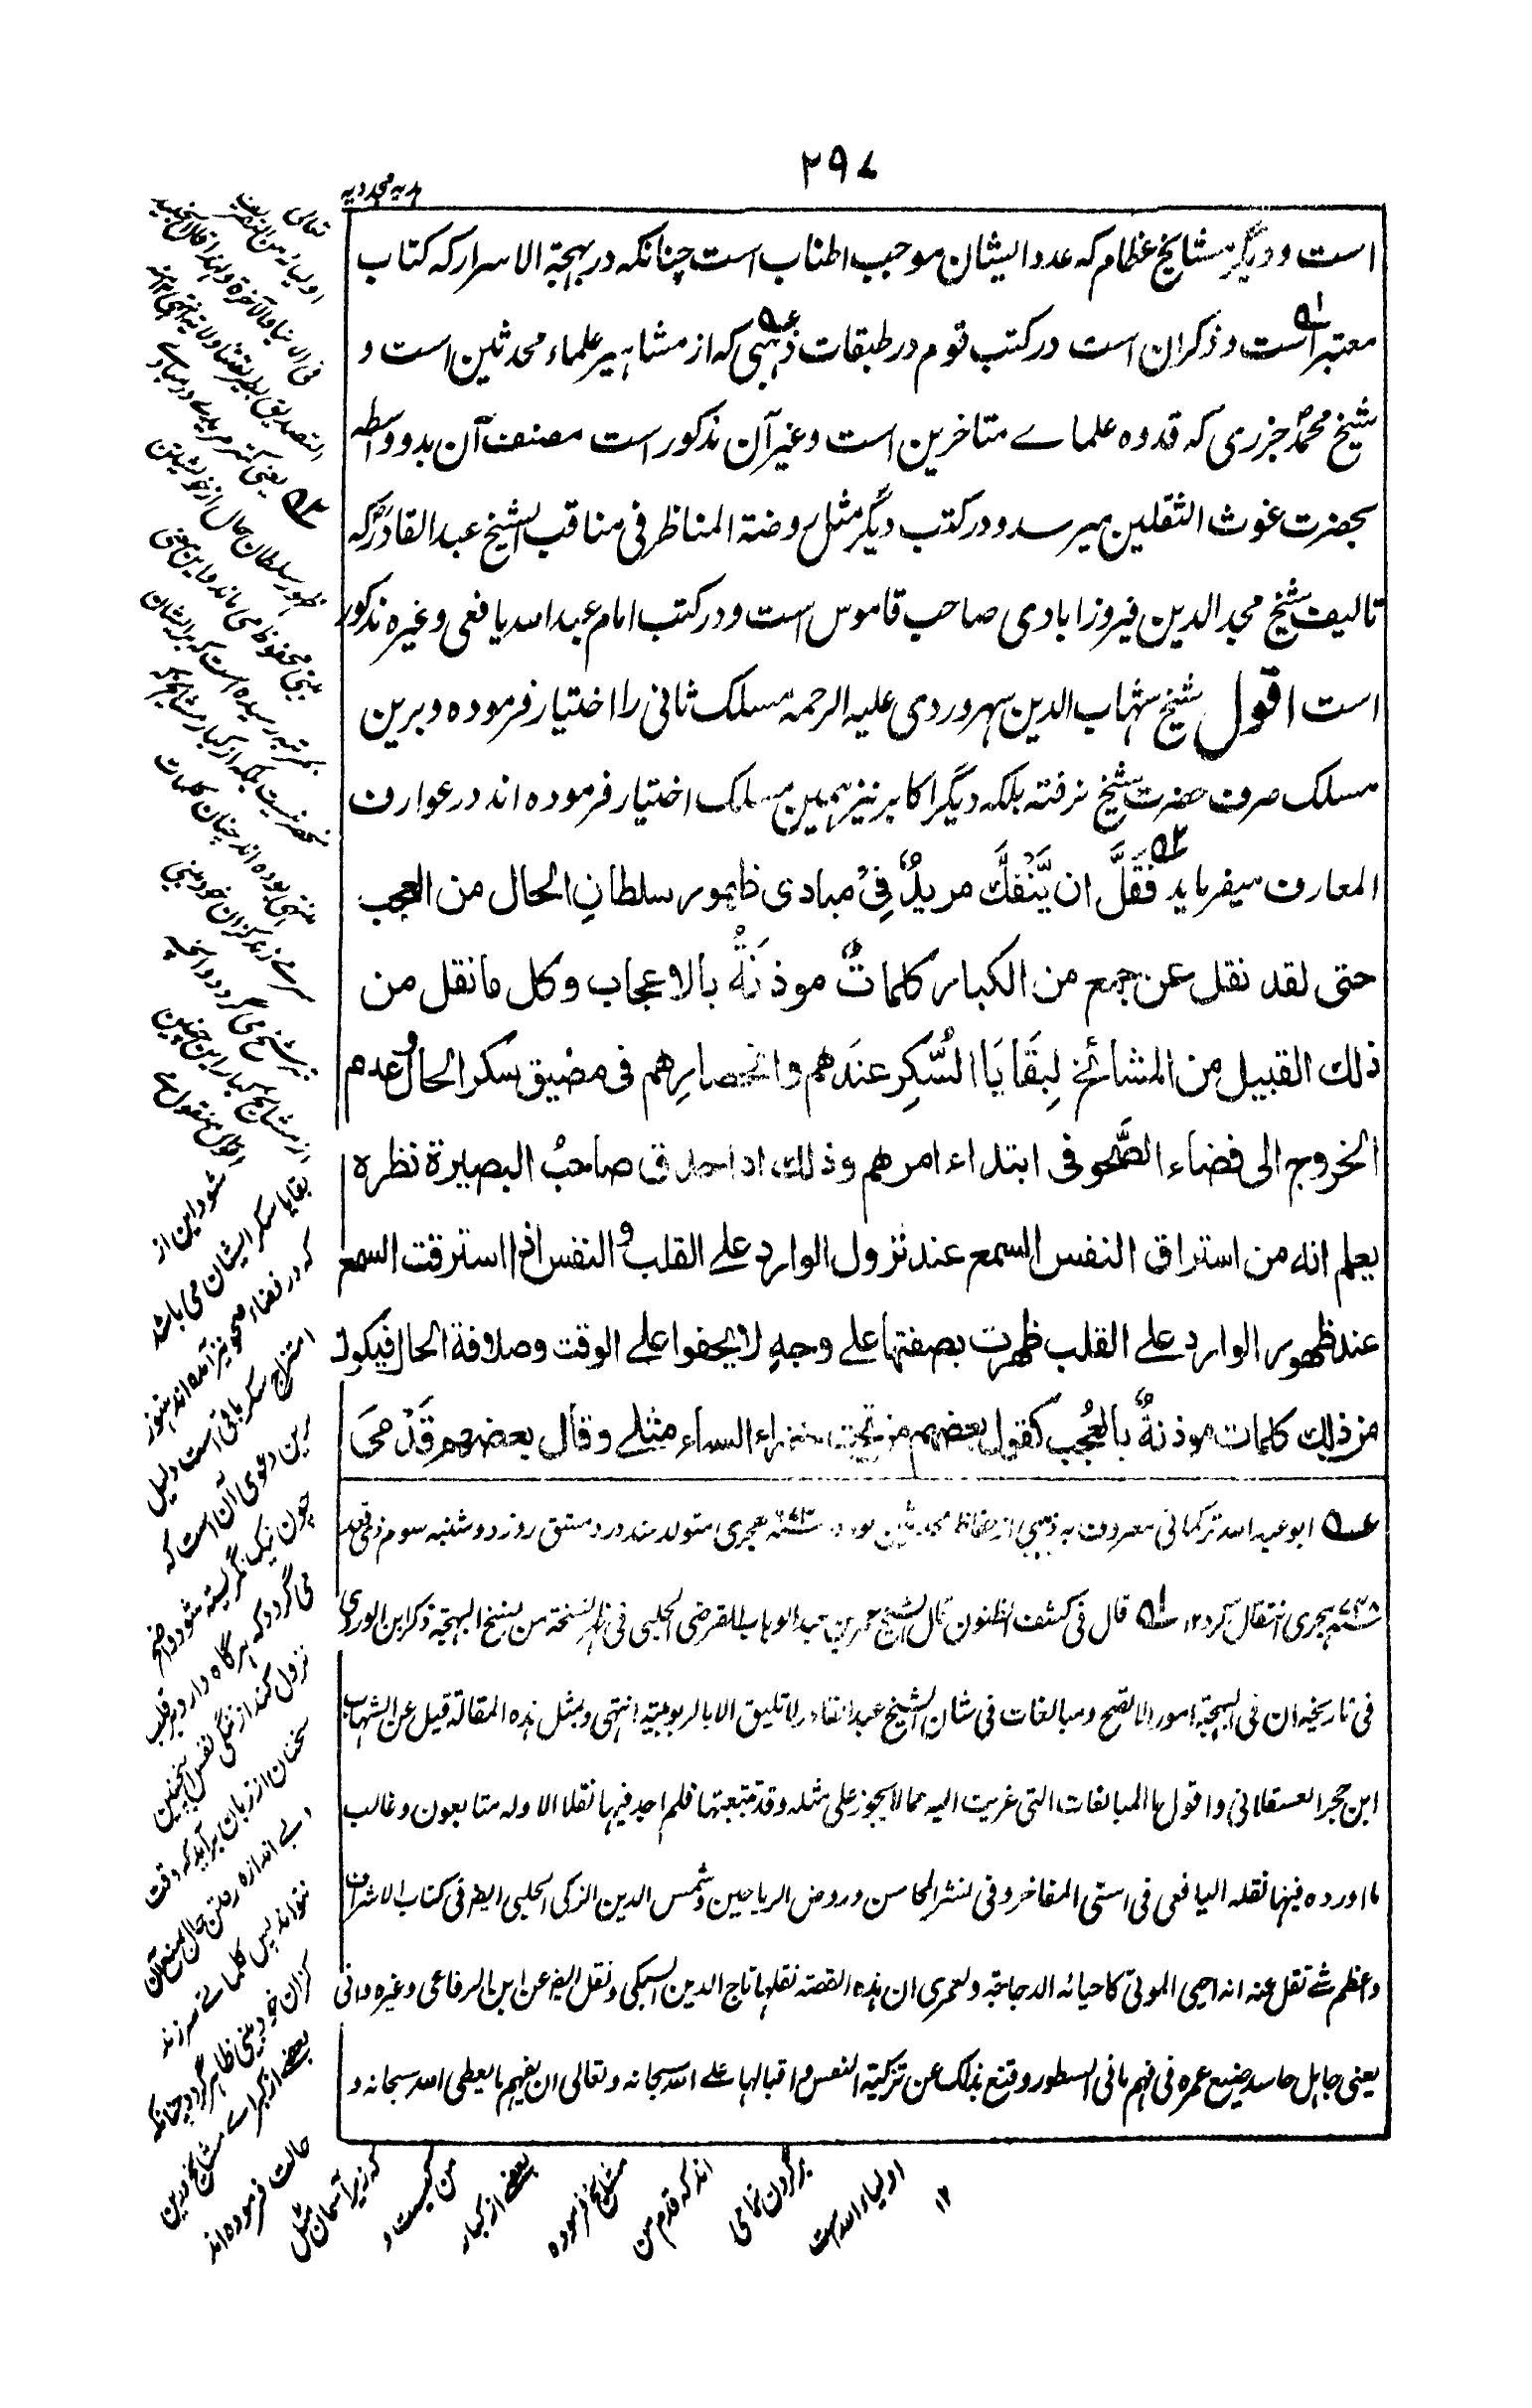 ۲۹۷
ہدیہ مجددیہ
است و دیگر مشایخ عظام کہ عدد ایشان موجب اطناب است چنانکہ در بہجۃ الاسرار کہ کتاب
معتبر است و ذکر آن است در کتب قوم در طبقات ذہبی کہ از مشاہیر علماء محدثین است و
شیخ محمد جزری کہ قدوہ علماے متاخرین است و غیر آن مذکور است مصنف آن بدو واسطہ
بحضرت غوث الثقلین میرسد و در کتب دیگر مثل روضۃ المناظر فی مناقب الشیخ عبد القادر کہ
تالیف شیخ مجد الدین فیروزابادی صاحب قاموس است و در کتب امام عبد اللہ یافعی و غیرہ مذکور
است اقول شیخ شہاب الدین سہروردی علیہ الرحمہ مسلک ثانی را اختیار فرمودہ و برین
مسلک صرف حضرت شیخ نرفتہ بلکہ دیگر اکابر نیز ہمین مسلک اختیار فرمودہ اند در عوارف
المعارف میفرماید فَقَلَّ ان یَّنْفَكَّ مریدٌ فِیْ مبادی ظہور سلطانِ الحال من العجب
حتی لقد نقل عن جمع من الکبار کلماتٌ موذنَةٌ بالاعجاب وکل مانقل من
ذلك القبیل من المشائخ لِبَقَایَا السُّکرِ عندَهم وانحصارِهم فی مضیق سکر الحال وعدم
الخروج الی فضاء الصَّحو فی ابتداء امرهم وذلك اذا حدق صاحبُ البصیرة نظره
یعلم انه من استراق النفس السمع عند نزول الوارد علی القلب والنفس اذا استرقت السمع
عند ظهور الوارد علی القلب ظهرت بصفتها علی وجهٍ لا یجفوا علی الوقت وصلافة الحال فیکون
من ذلك کلمات موذنةٌ بالعُجب کقول بعضهم من تحت خضراء السماء مثلی وقال بعضهم قَدَمِی
ابو عبد اللہ ترکمانی معروف بہ ذہبی از حفاظ محدثین بود در ہجری متولد شد در دمشق روز دوشنبہ سوم ذی قعد
۷۴۸ ہجری انتقال کرد ۱۲ قال فی کشف الظنون قال الشیخ عمر بن عبد الوہاب القرضی الحلبی فی ظہر نسخۃ من نسخ البہجۃ ذکر ابن الوردی
فی تاریخہ ان فی البہجۃ امور الا تصح و مبالغات فی شان الشیخ عبد القادر لا تلیق الا بالربوبیۃ انتہی و بمثل ہذہ المقالۃ قیل عن الشہاب
ابن حجر العسقلانی و اقول ما المبالغات التی عزیت الیہ مما لا یجوز علی مثلہ و قد تتبعتہا فلم اجد فیہا نقلا الا ولہ متابعون و غالب
ما اوردہ فیہا نقلہ الیافعی فی اسنی المفاخر و فی نشر المحاسن و روض الریاحین و شمس الدین الزکی الحلبی ایضا فی کتاب الاشراف
و اعظم شے نقل عنہ انہ احیی الموتی کاحیائہ الدجاجۃ و لعمری ان ہذہ القصۃ نقلہا تاج الدین السبکی و نقل ایضا عن ابن الرفاعی و غیرہ و انی
یعنی جاہل حاسد ضیع عمرہ فی فہم ما فی السطور و قنع بذلک عن تزکیۃ النفس و اقبالہا علے اللہ سبحانہ و تعالی ان یفہم ما یعطی اللہ سبحانہ و
تعالی
یعنی کمتر مریدے در مبادے
ظہور سلطان حال از خویشتن
بینی محفوظ می ماند و این معنی
بمرتبہ رسیدہ است کہ
شود این از
بقایا سکر ایشان می باشد
کہ در فضاء صحو نیز آمدہ اند ہنوز
امتزاج سکر باقی است دلیل
برین دعوی آن است کہ
چون نیک نگریستہ شود واضح
می گردد کہ ہرگاہ وارد بر قلب
نزول کند از نفس اینچنین
سخنان از زبان برآید کہ وقت
کزان خود بینی ظاہر گردد چنانکہ
بعضے از کبراے مشایخ درین
حالت فرمودہ اند
کہ زیر آسمان مثل
من کیست و
بعضے از کبار
مشایخ فرمودہ
اند کہ قدم من
بر گردن تمامی
اولیاء اللہ است
۱۲